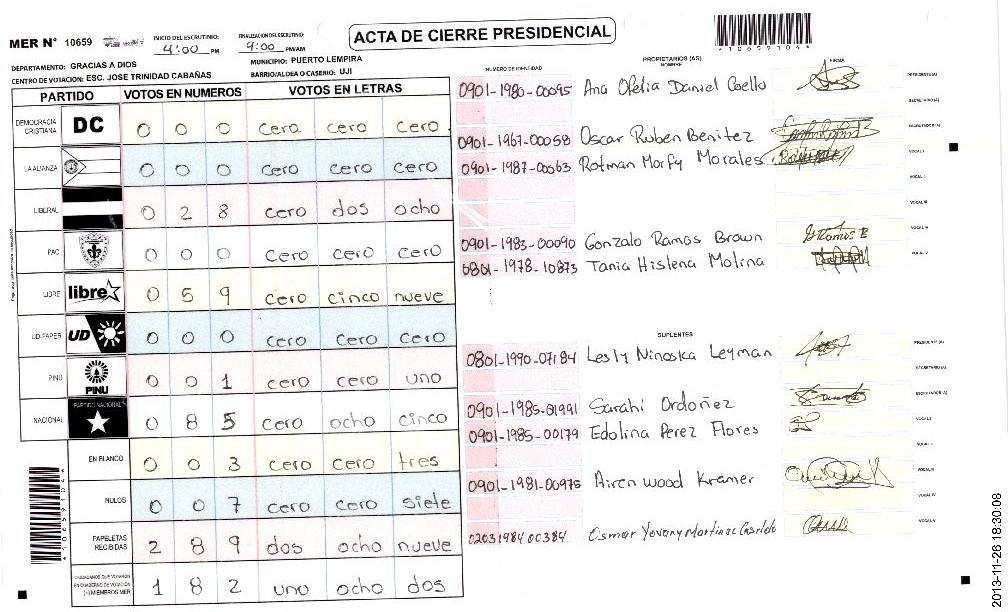 ACTA DE CIERRE PRESIDENCIAL
MER N° 10659
INICIO DEL ESCRUTINIO: 4:00 PM
FINALIZACION DEL ESCRUTINIO: 9:00 PM/AM
DEPARTAMENTO: GRACIAS A DIOS
MUNICIPIO: PUERTO LEMPIRA
CENTRO DE VOTACION: ESC. JOSE TRINIDAD CABAÑAS
BARRIO/ALDEA O CASERIO: UJI
PARTIDO VOTOS EN NUMEROS VOTOS EN LETRAS
DEMOCRACIA CRISTIANA DC 0 0 0 cero cero cero
LA ALIANZA 0 0 0 cero cero cero
LIBERAL 0 2 8 cero dos ocho
PAC 0 0 0 cero cero cero
LIBRE libre 0 5 9 cero cinco nueve
UD-FAPER UD 0 0 0 cero cero cero
PINU PINU 0 0 1 cero cero uno
NACIONAL PARTIDO NACIONAL 0 8 5 cero ocho cinco
EN BLANCO 0 0 3 cero cero tres
NULOS 0 0 7 cero cero siete
PAPELETAS RECIBIDAS 2 8 9 dos ocho nueve
CIUDADANOS QUE VOTARON EN CUADERNO DE VOTACION (+) MIEMBROS MER 1 8 2 uno ocho dos
NUMERO DE IDENTIDAD PROPIETARIOS (AS) NOMBRE FIRMA
0901-1980-00095 Ana Ofelia Daniel Coello PRESIDENTE(A)
SECRETARIO(A)
0901-1967-00058 Oscar Ruben Benitez ESCRUTADOR(A)
0901-1987-00063 Rotman Morfy Morales VOCAL I
VOCAL II
VOCAL III
0901-1983-00090 Gonzalo Ramos Brown VOCAL IV
0801-1978-10873 Tania Hislena Molina VOCAL V
SUPLENTES
0801-1990-07184 Lesly Ninoska Leyman PRESIDENTE(A)
SECRETARIO(A)
0901-1985-01991 Sarahi Ordoñez ESCRUTADOR(A)
0901-1985-00179 Edolina Perez Flores VOCAL I
VOCAL II
0901-1981-00975 Airen wood Kramer VOCAL III
VOCAL IV
02031984 00384 Osmar Yovany Martinez VOCAL V
2013-11-26 18:30:08